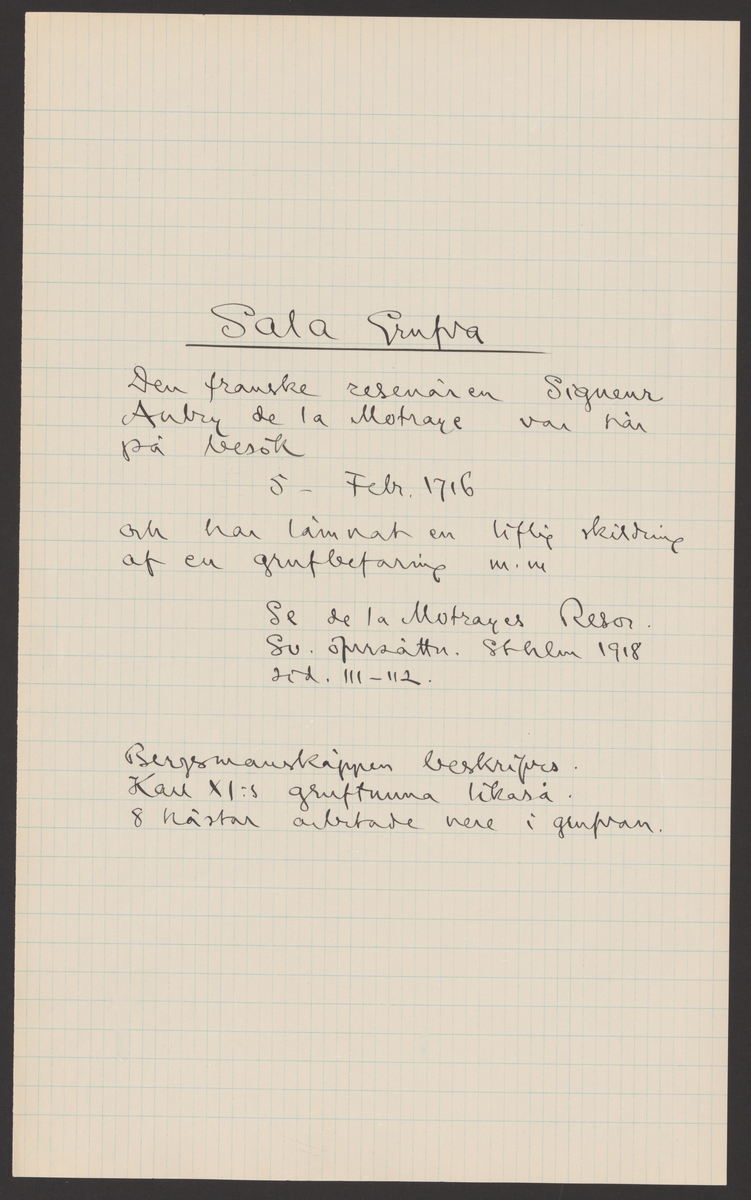 Sala Grufva
Den franske resenären Signeur
Aubry de la Motraye var här
på besök
5 - Febr. 1716
och har lämnat en liflig skildring
af en grufbefaring m.m
Se de la Motrayes Resor.
Sv. öfversättn. Sthlm 1918
sid. 111-112.
Bergsmanskäppen beskrifves.
Karl XI:s gruftunna likaså.
8 hästar arbetade nere i grufvan.